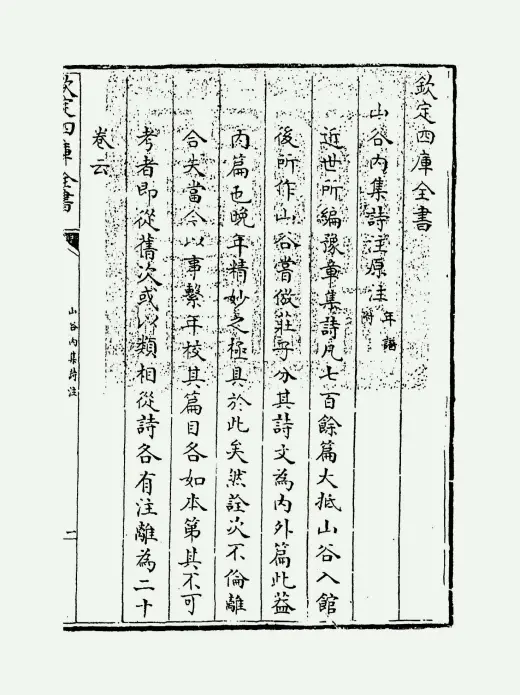 欽定四庫全書
山谷內集詩注原注 年譜附
近世所編豫章集詩凡七百餘篇大抵山谷入館
後所作山谷嘗倣莊子分其詩文為内外篇此葢
内篇也晚年精妙之極具於此矣然詮次不倫離
合失當今以事繫年校其篇目各如本第其不可
考者即從舊次或以類相從詩各有注離為二十
卷云
欽定四庫全書
山谷内集詩注
二